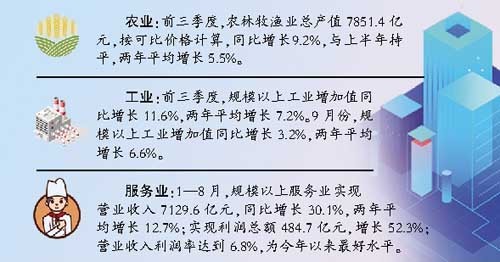 农业:前三季度,农林牧渔业总产值 7851.4 亿
元,按可比价格计算,同比增长9.2%,与上半年持
平,两年平均增长 5.5%。
工业:前三季度,规模以上工业增加值同
比增长 11.6%,两年平均增长 7.2%。9 月份,规
模以上工业增加值同比增长 3.2%,两年平均
增长 6.6%。
服务业:1—8 月,规模以上服务业实现
营业收入 7129.6 亿元,同比增长 30.1%,两年平
均增长 12.7%;实现利润总额 484.7 亿元,增长 52.3%;
营业收入利润率达到 6.8%,为今年以来最好水平。